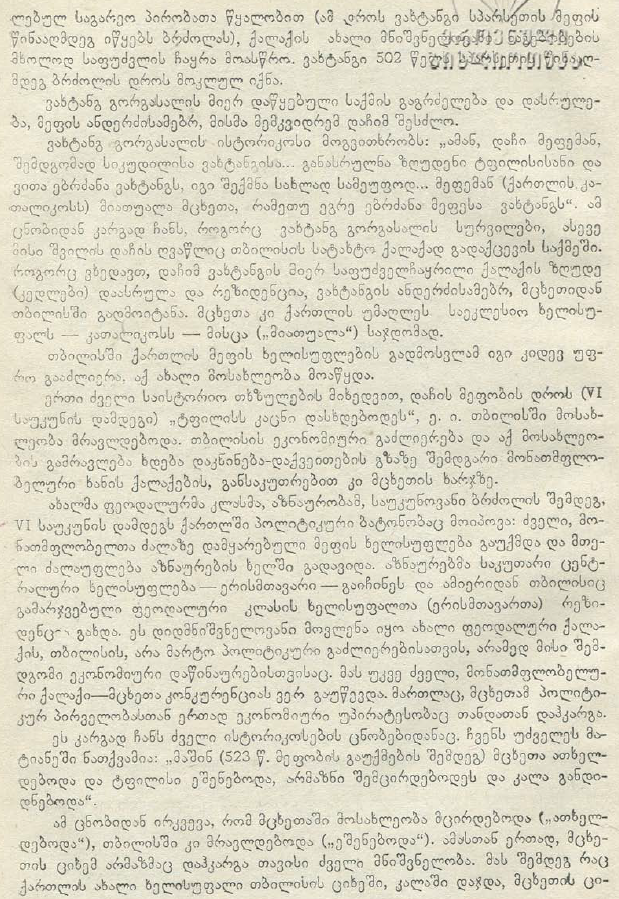 ლებულ საგარეო პირობათა წყალობით (ამ დროს ვახტანგი სპარსეთის მეფის
წინააღმდეგ იწყებს ბრძოლას), ქალაქის ახალი მნიშვნელოვანი ნაგებობების
მხოლოდ საფუძვლის ჩაყრა მოასწრო. ვახტანგი 502 წელს სპარსეთის წინაღ-
მდეგ ბრძოლის დროს მოკლულ იქნა.
ვახტანგ გორგასალის მიერ დაწყებული საქმის გაგრძელება და დასრულე-
ბა, მეფის ანდერძისამებრ, მისმა მემკვიდრემ დაჩიმ შესძლო.
ვახტანგ გორგასალის ისტორიკოსი მოგვითხრობს: „ამან, დაჩი მეფემან,
შემდგომად სიკუდილისა ვახტანგისა... განასრულნა ზღუდენი ტფილისისანი და
ვითა ებრძანა ვახტანგს, იგი შექმნა სახლად სამეუფოდ... მეფემან (ქართლის კა-
თალიკოსს) მიათუალა მცხეთა, რამეთუ ეგრე ებრძანა მეფესა ვახტანგს“. ამ
ცნობიდან კარგად ჩანს, როგორც ვახტანგ გორგასალის სურვილები, ასევე
მისი შვილის დაჩის ღვაწლიც თბილისის სატახტო ქალაქად გადაქცევის საქმეში.
როგორც ვხედავთ, დაჩიმ ვახტანგის მიერ საფუძველჩაყრილი ქალაქის ზღუდე
(კედლები) დაასრულა და რეზიდენცია, ვახტანგის ანდერძისამებრ, მცხეთიდან
თბილისში გადმოიტანა. მცხეთა კი ქართლის უმაღლეს საეკლესიო ხელისუ-
ფალს — კათალიკოსს — მისცა („მიათუალა“) საჯდომად.
თბილისში ქართლის მეფის ხელისუფლების გადმოსვლამ იგი კიდევ უფ-
რო გააძლიერა. აქ ახალი მოსახლეობა მოაწყდა.
ერთი ძველი საისტორიო თხზულების მიხედვით, დაჩის მეფობის დროს (VI
საუკუნის დამდეგი) „ტფილისს კაცნი დასხდებოდეს“, ე. ი. თბილისში მოსახ-
ლეობა მრავლდებოდა. თბილისის ეკონომიური გაძლიერება და აქ მოსახლეო-
ბის გამრავლება ხდება დაკნინება-დაქვეითების გზაზე შემდგარი მონათმფლო-
ბელური ხანის ქალაქების, განსაკუთრებით კი მცხეთის ხარჯზე.
ახალმა ფეოდალურმა კლასმა, აზნაურობამ, საუკუნოვანი ბრძოლის შემდეგ,
VI საუკუნის დამდეგს ქართლში პოლიტიკური ბატონობაც მოიპოვა: ძველი, მო-
ნათმფლობელთა ძალაზე დამყარებული მეფის ხელისუფლება გაუქმდა და მთე-
ლი ძალაუფლება აზნაურების ხელში გადავიდა. აზნაურებმა საკუთარი ცენტ-
რალური ხელისუფლება — ერისმთავარი — გაიჩინეს და ამიერიდან თბილისიც
გამარჯვებული ფეოდალური კლასის ხელისუფალთა (ერისმთავართა) რეზი-
დენცია გახდა. ეს დიდმნიშვნელოვანი მოვლენა იყო ახალი ფეოდალური ქალა-
ქის, თბილისის, არა მარტო პოლიტიკური გაძლიერებისათვის, არამედ მისი შემ-
დგომი ეკონომიური დაწინაურებისთვისაც. მას უკვე ძველი, მონათმფლობელუ-
რი ქალაქი—მცხეთა კონკურენციას ვერ გაუწევდა. მართლაც, მცხეთამ პოლიტი-
კურ პირველობასთან ერთად ეკონომიური უპირატესობაც თანდათან დაჰკარგა.
ეს კარგად ჩანს ძველი ისტორიკოსების ცნობებიდანაც. ჩვენს უძველეს მა-
ტიანეში ნათქვამია: „მაშინ (523 წ. მეფობის გაუქმების შემდეგ) მცხეთა ათხელ-
დებოდა და ტფილისი ეშენებოდა, არმაზნი შემცირდებოდეს და კალა განდი-
დნებოდა“.
ამ ცნობიდან ირკვევა, რომ მცხეთაში მოსახლეობა მცირდებოდა („ათხელ-
დებოდა“), თბილისში კი მრავლდებოდა („ეშენებოდა“). ამასთან ერთად, მცხე-
თის ციხემ არმაზმაც დაჰკარგა თავისი ძველი მნიშვნელობა. მას შემდეგ რაც
ქართლის ახალი ხელისუფალი თბილისის ციხეში, კალაში დაჯდა, მცხეთის ცი-